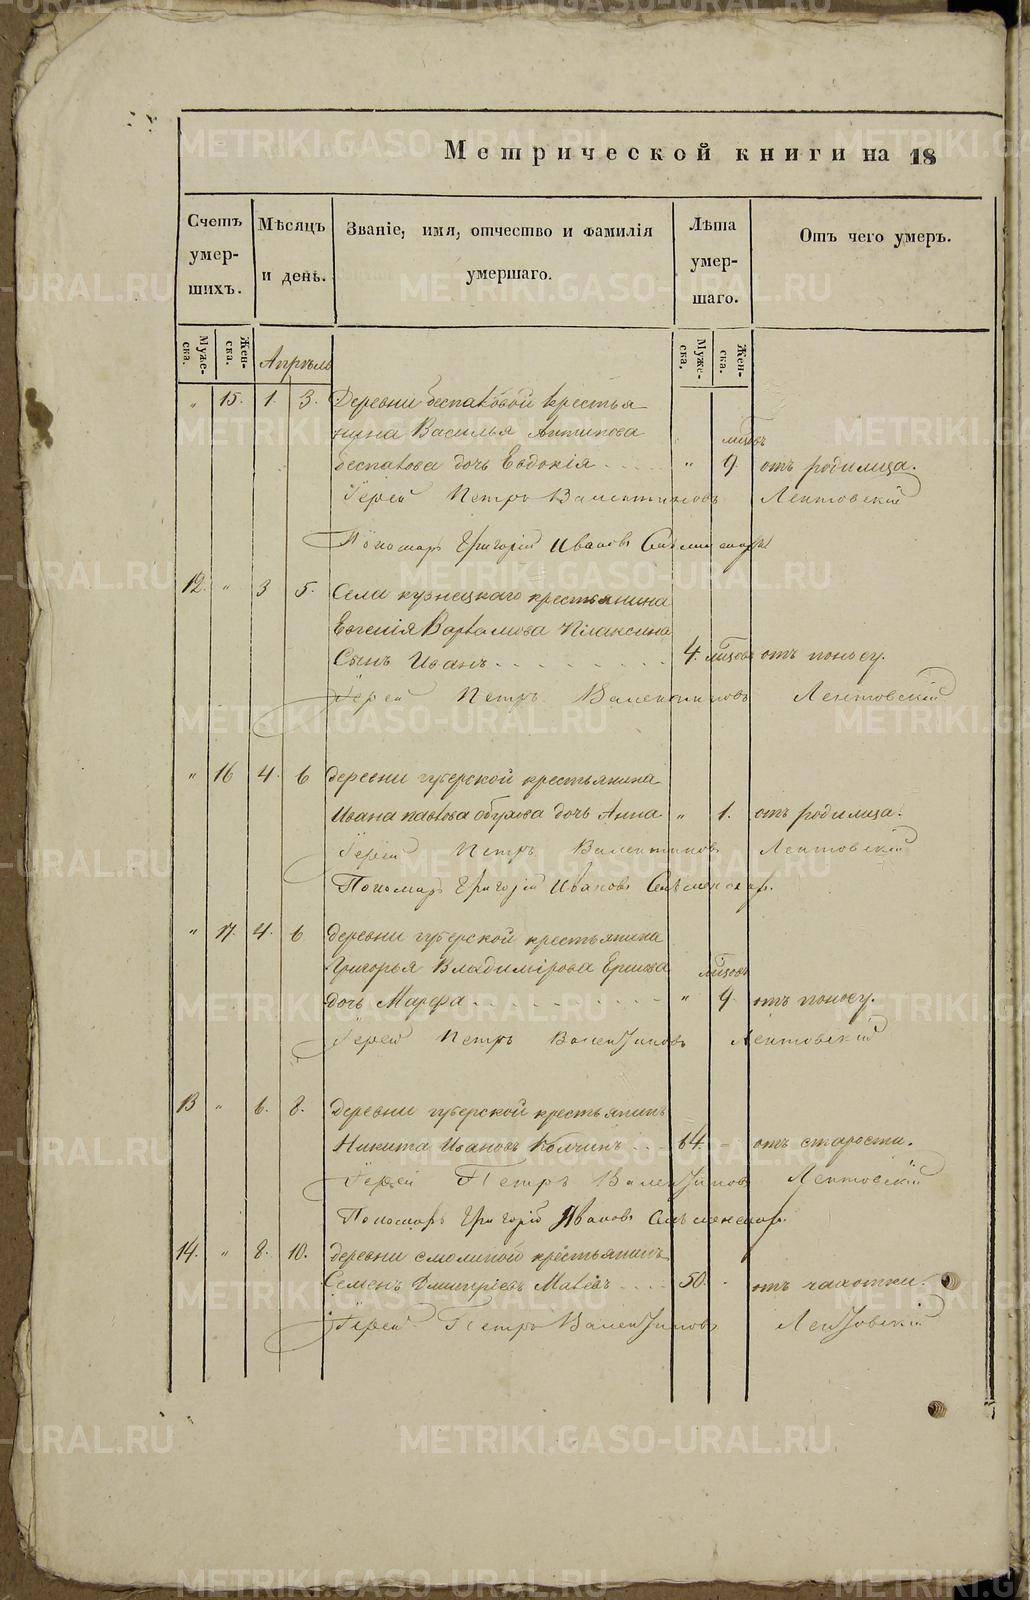 Метрической книги на 18
Счетъ умер-шихъ.
Мѣсяцъ и день.
Званіе, имя, отчество и фамилія умершаго.
Лѣта умер-шаго.
Отъ чего умеръ.
Муже-ска.
Жен-ска.
Апрѣль
Муже-ска.
Жен-ска.
„ 15. 1. 3. Деревни беспаловой крестья
нина Василья Антипова мѣсцовъ
беспалова дочь Евдокія „ 9 отъ родимца.
Іерей Петръ Валентиновъ Лентовскій
Пономарь Григорій Ивановъ
12. „ 3 5. Села кузнецкаго крестьянина
Евгенія Варламова Плаксина
Сынъ Иванъ 4. мѣсцовъ отъ поносу.
Іерей Петръ Валентиновъ Лентовскій
„ 16 4. 6 деревни губерской крестьянина
Ивана павлова обухова дочь Анна „ 1. отъ родимца.
Іерей Петръ Валентиновъ Лентовскій
Пономарь Григорій Ивановъ
„ 17. 4. 6 деревни губерской крестьянина
Григорья Владимірова мѣсцовъ
дочь Марфа „ 9. отъ поносу.
Іерей Петръ Валентиновъ Лентовскій
13 „ 6. 8. деревни губерской крестьянинъ
Никита Ивановъ Колчинъ 64. отъ старости.
Іерей Петръ Валентиновъ Лентовскій
Пономарь Григорій Ивановъ
14. „ 8. 10. деревни смолиной крестьянинъ
Семенъ Дмитріевъ 50. отъ чахотки.
Іерей Петръ Валентиновъ Лентовскій
METRIKI.GASO-URAL.RU